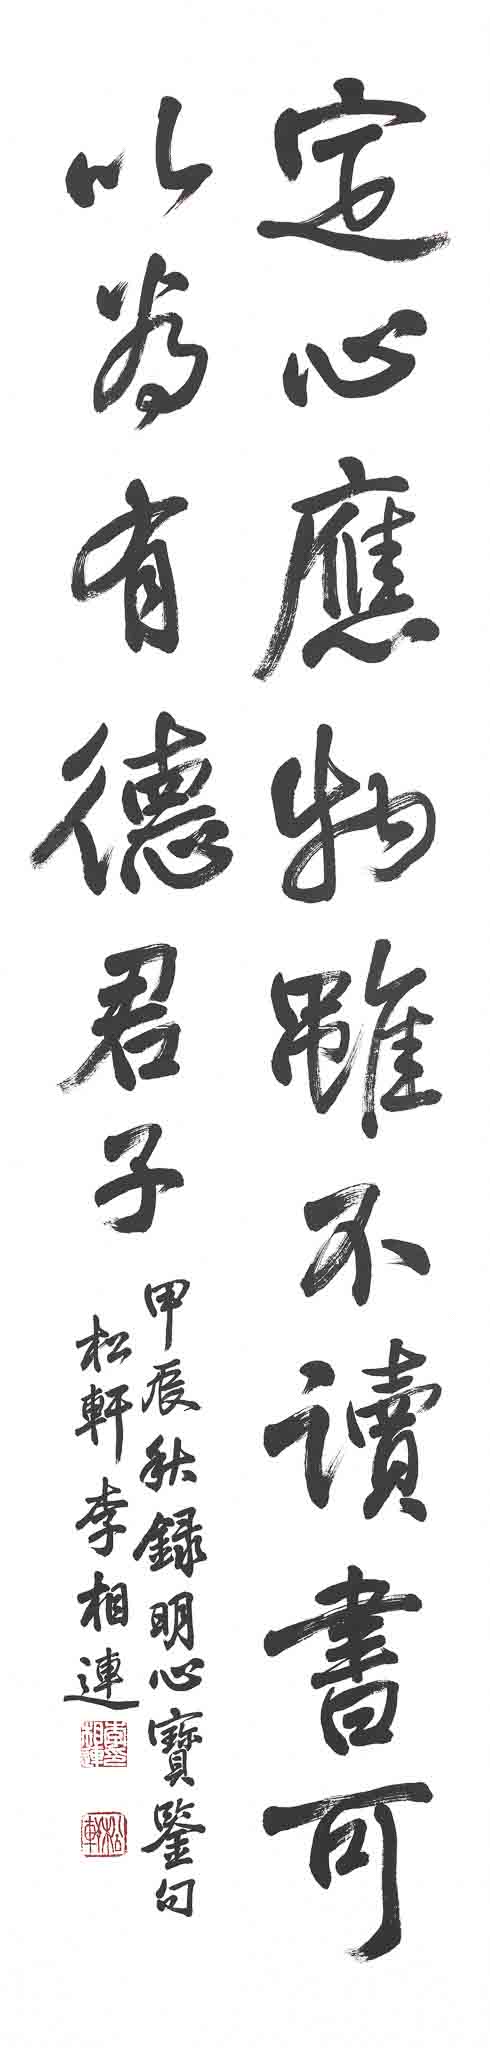 定心應物雖不讀書可
以為有德君子
甲辰秋錄明心寶鑒句
松軒李相連
李相連印
松軒